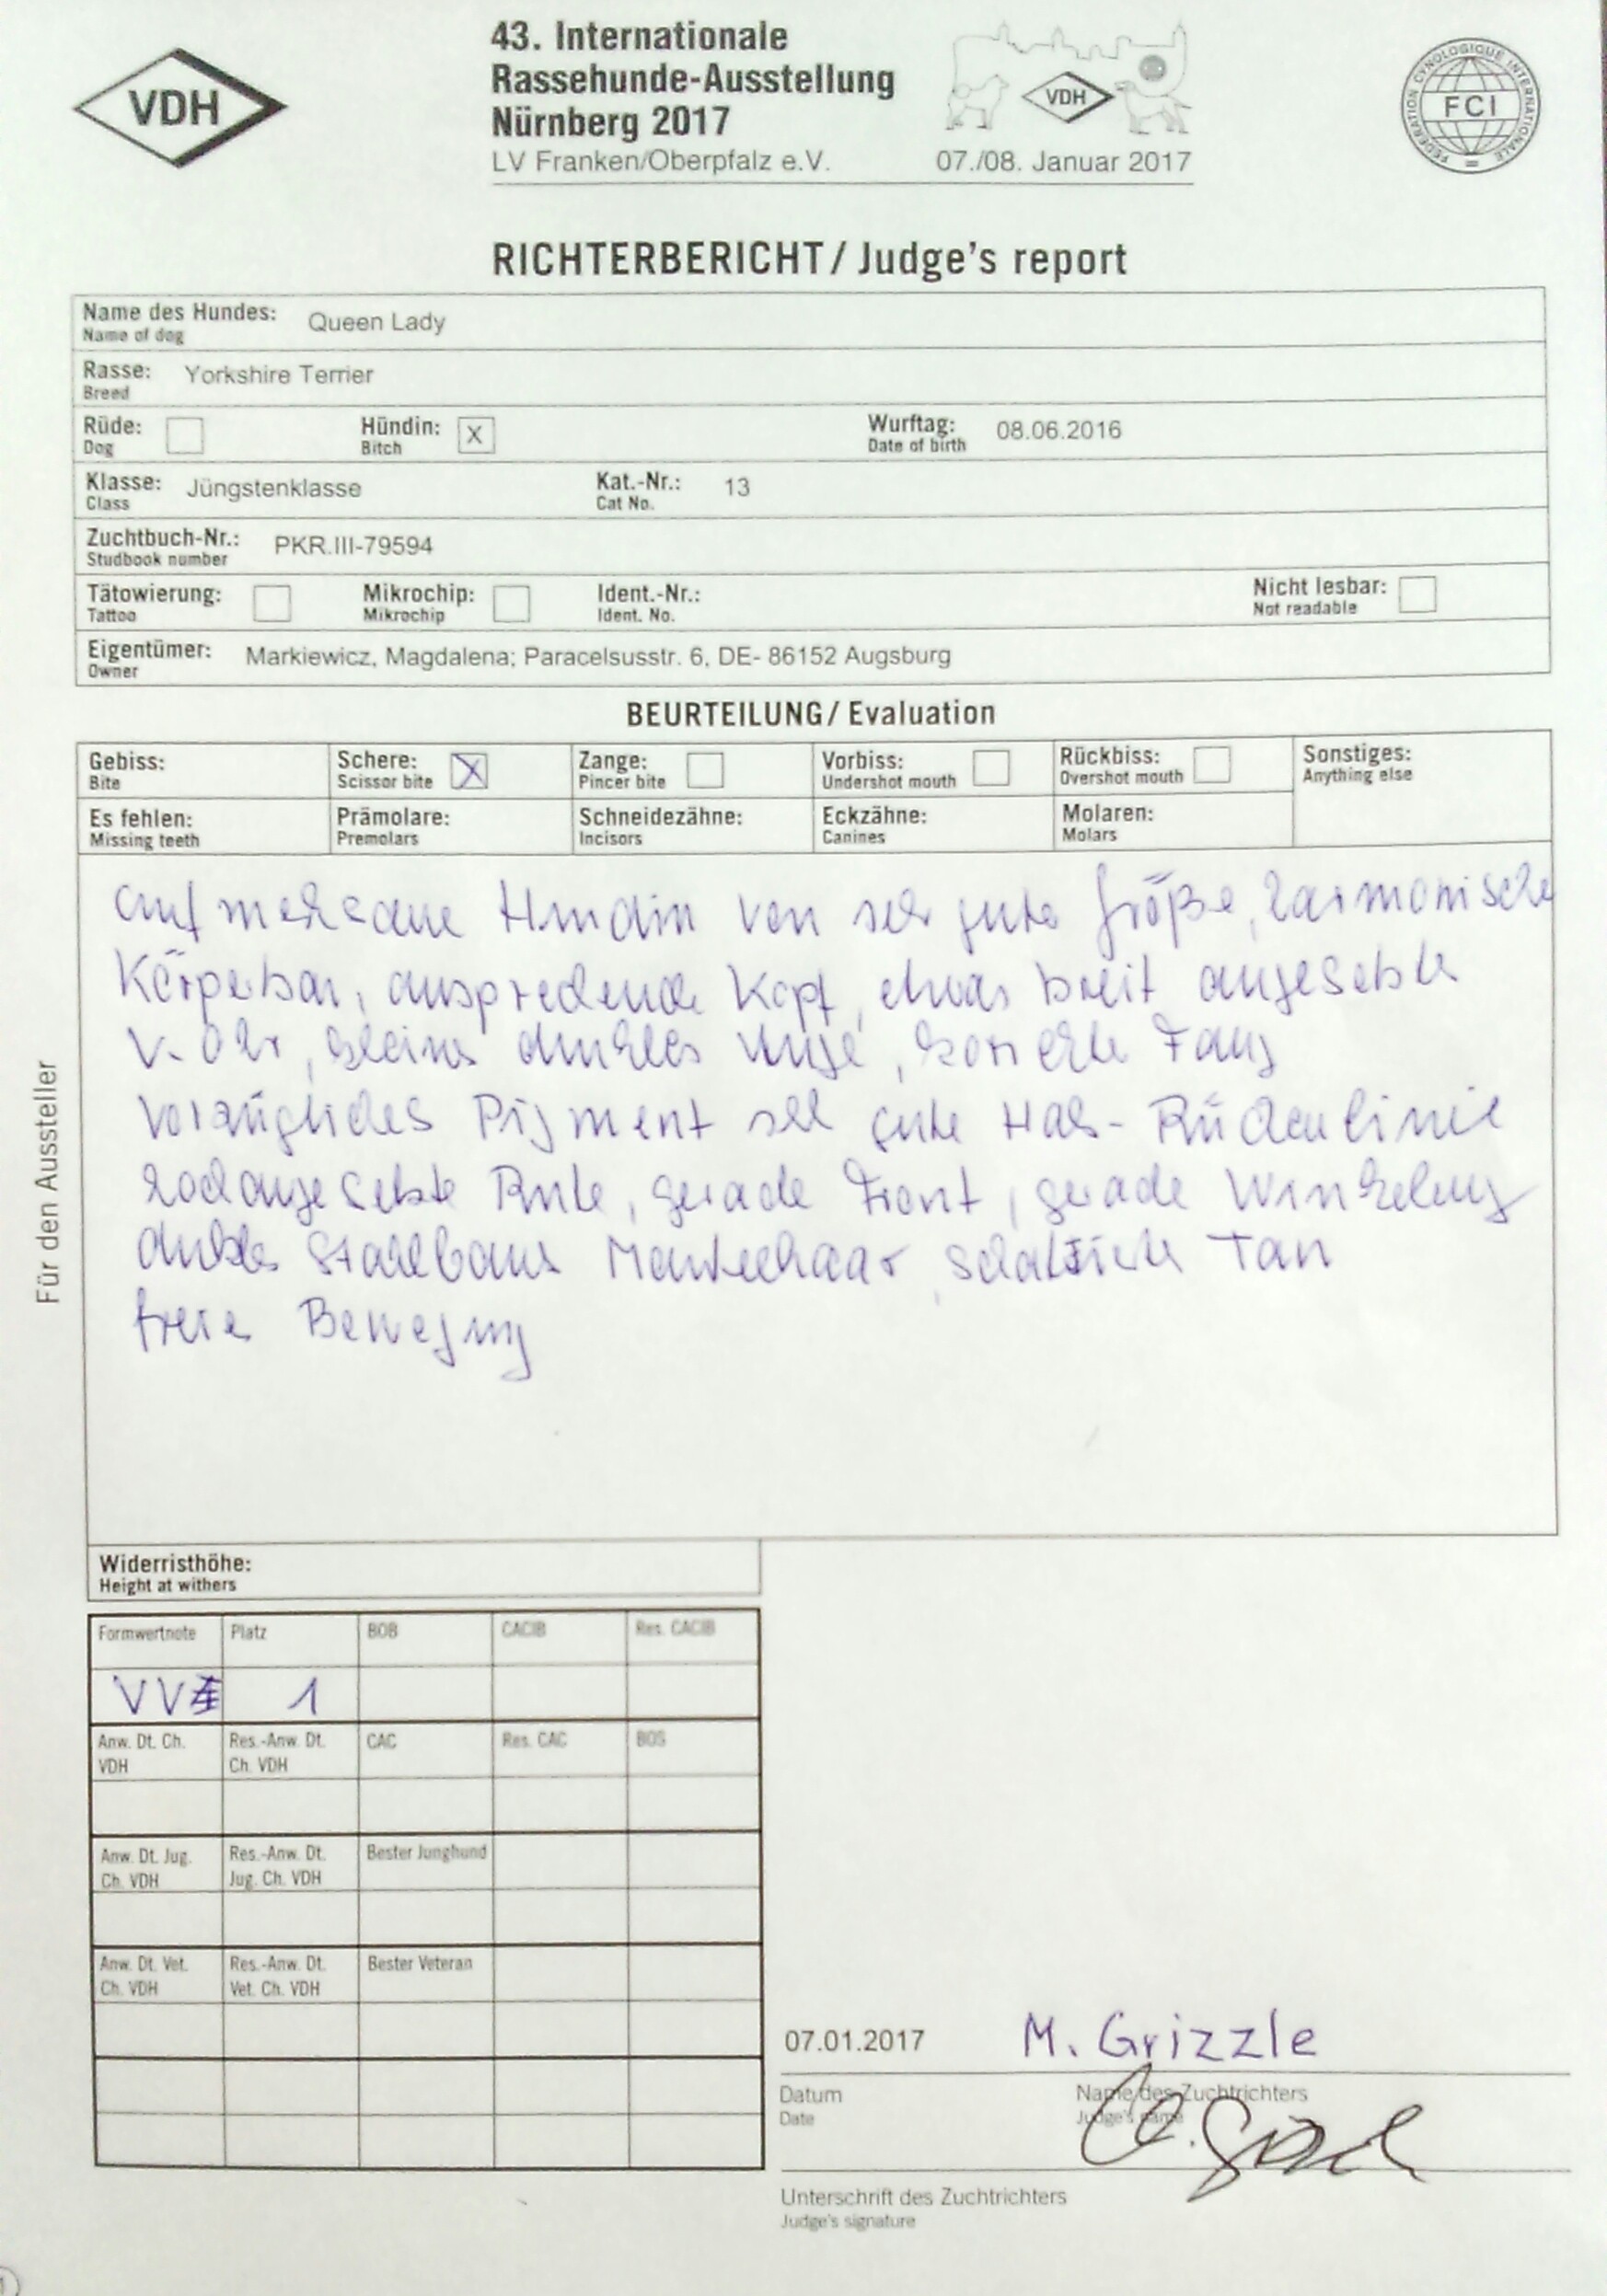 VDH
43. Internationale
Rassehunde-Ausstellung
Nürnberg 2017
LV Franken/Oberpfalz e.V.
VDH
07./08. Januar 2017
FEDERATION CYNOLOGIQUE INTERNATIONALE
FCI
RICHTERBERICHT / Judge's report
Name des Hundes: Queen Lady
Name of dog
Rasse: Yorkshire Terrier
Breed
Rüde: Hündin: X Wurftag: 08.06.2016
Dog Bitch Date of birth
Klasse: Jüngstenklasse Kat.-Nr.: 13
Class Cat No.
Zuchtbuch-Nr.: PKR.III-79594
Studbook number
Tätowierung: Mikrochip: Ident.-Nr.: Nicht lesbar:
Tattoo Mikrochip Ident. No. Not readable
Eigentümer: Markiewicz, Magdalena; Paracelsusstr. 6, DE- 86152 Augsburg
Owner
BEURTEILUNG / Evaluation
Gebiss: Schere: X Zange: Vorbiss: Rückbiss: Sonstiges:
Bite Scissor bite Pincer bite Undershot mouth Overshot mouth Anything else
Es fehlen: Prämolare: Schneidezähne: Eckzähne: Molaren:
Missing teeth Premolars Incisors Canines Molars
aufmerksame Hündin von sehr guter Größe, harmonischer
Körperbau, ansprechender Kopf, etwas breit angesetzte
V-Ohr, kleines dunkles Auge, korrekter Fang
vorzügliches Pigment sehr gute Hals-Rückenlinie
hochangesetzte Rute, gerade Front, gerade Winkelung
dunkles Stahlblaues Mantelhaar, schattierte Tan
freie Bewegung
Für den Aussteller
Widerristhöhe:
Height at withers
Formwertnote Platz BOB CACIB Res. CACIB
VV 1
Anw. Dt. Ch. Res.-Anw. Dt. CAC Res. CAC BOS
VDH Ch. VDH
Anw. Dt. Jug. Res.-Anw. Dt. Bester Junghund
Ch. VDH Jug. Ch. VDH
Anw. Dt. Vet. Res.-Anw. Dt. Bester Veteran
Ch. VDH Vet. Ch. VDH
07.01.2017 M. Grizzle
Datum Name des Zuchtrichters
Date Judge's name
Unterschrift des Zuchtrichters
Judge's signature